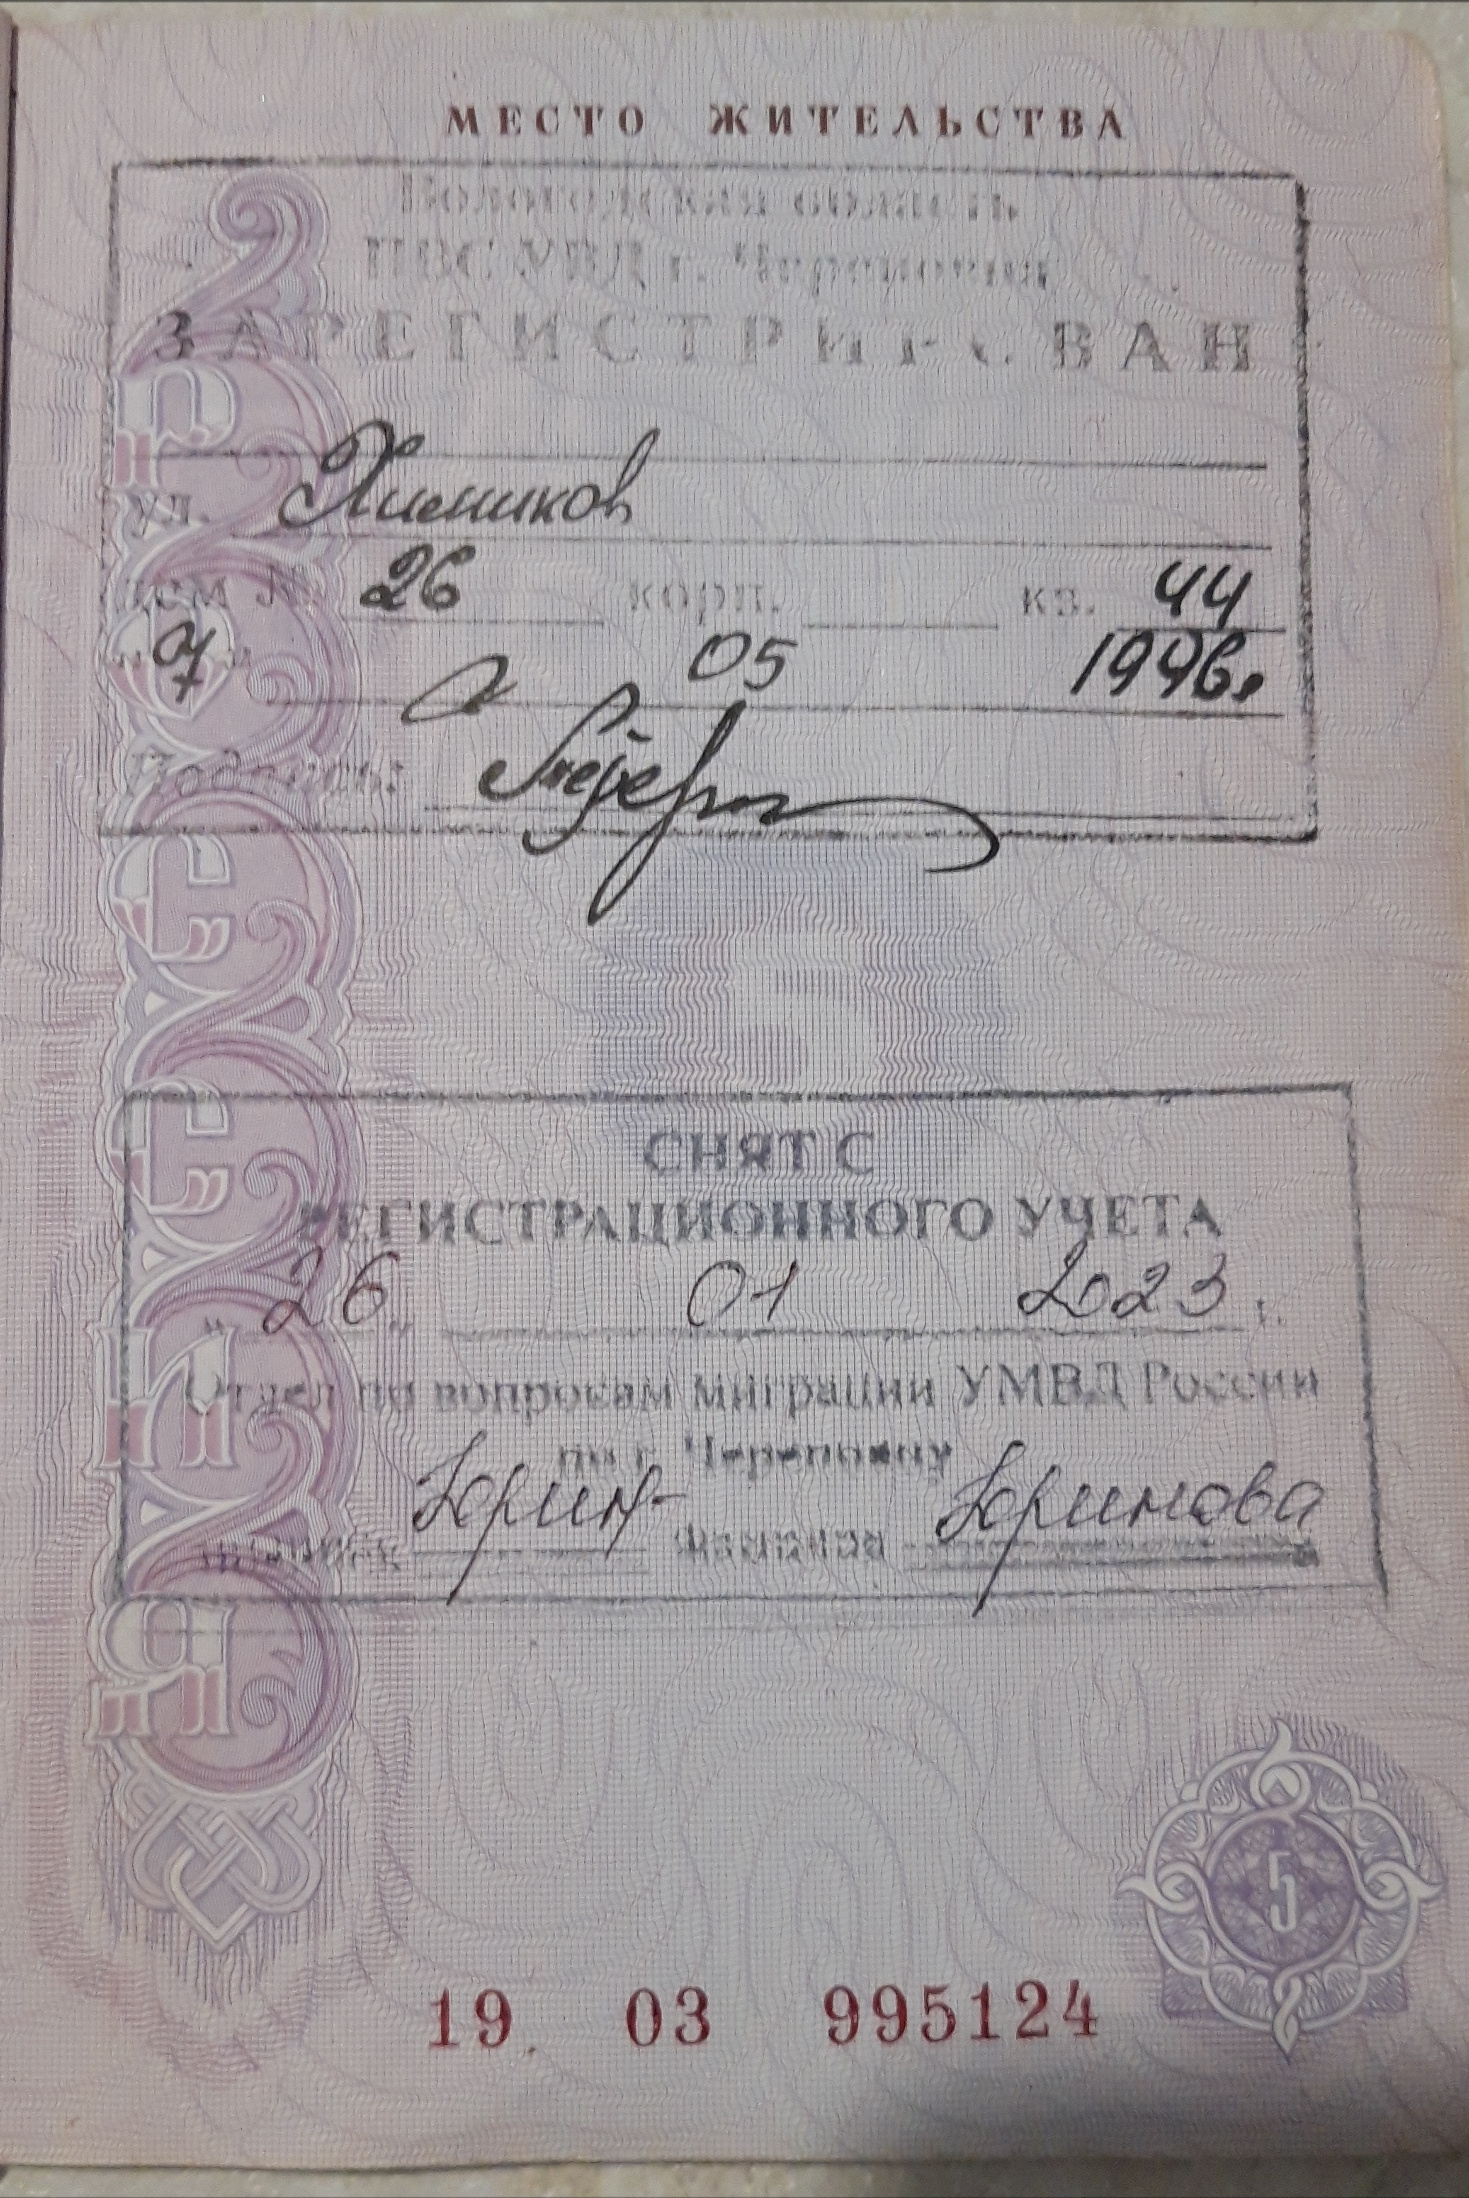 МЕСТО ЖИТЕЛЬСТВА
Вологодская область
ПВС УВД г. Череповца
ЗАРЕГИСТРИРОВАН
ул. Химиков
дом № 26 корп. кв. 44
"07" 05 1996г.
Подпись:
СНЯТ С
РЕГИСТРАЦИОННОГО УЧЕТА
"26" 01 2023 г.
Отдел по вопросам миграции УМВД России
по г. Череповцу
подпись Юрин- фамилия Юринова
РОССИЯ
5
19 03 995124